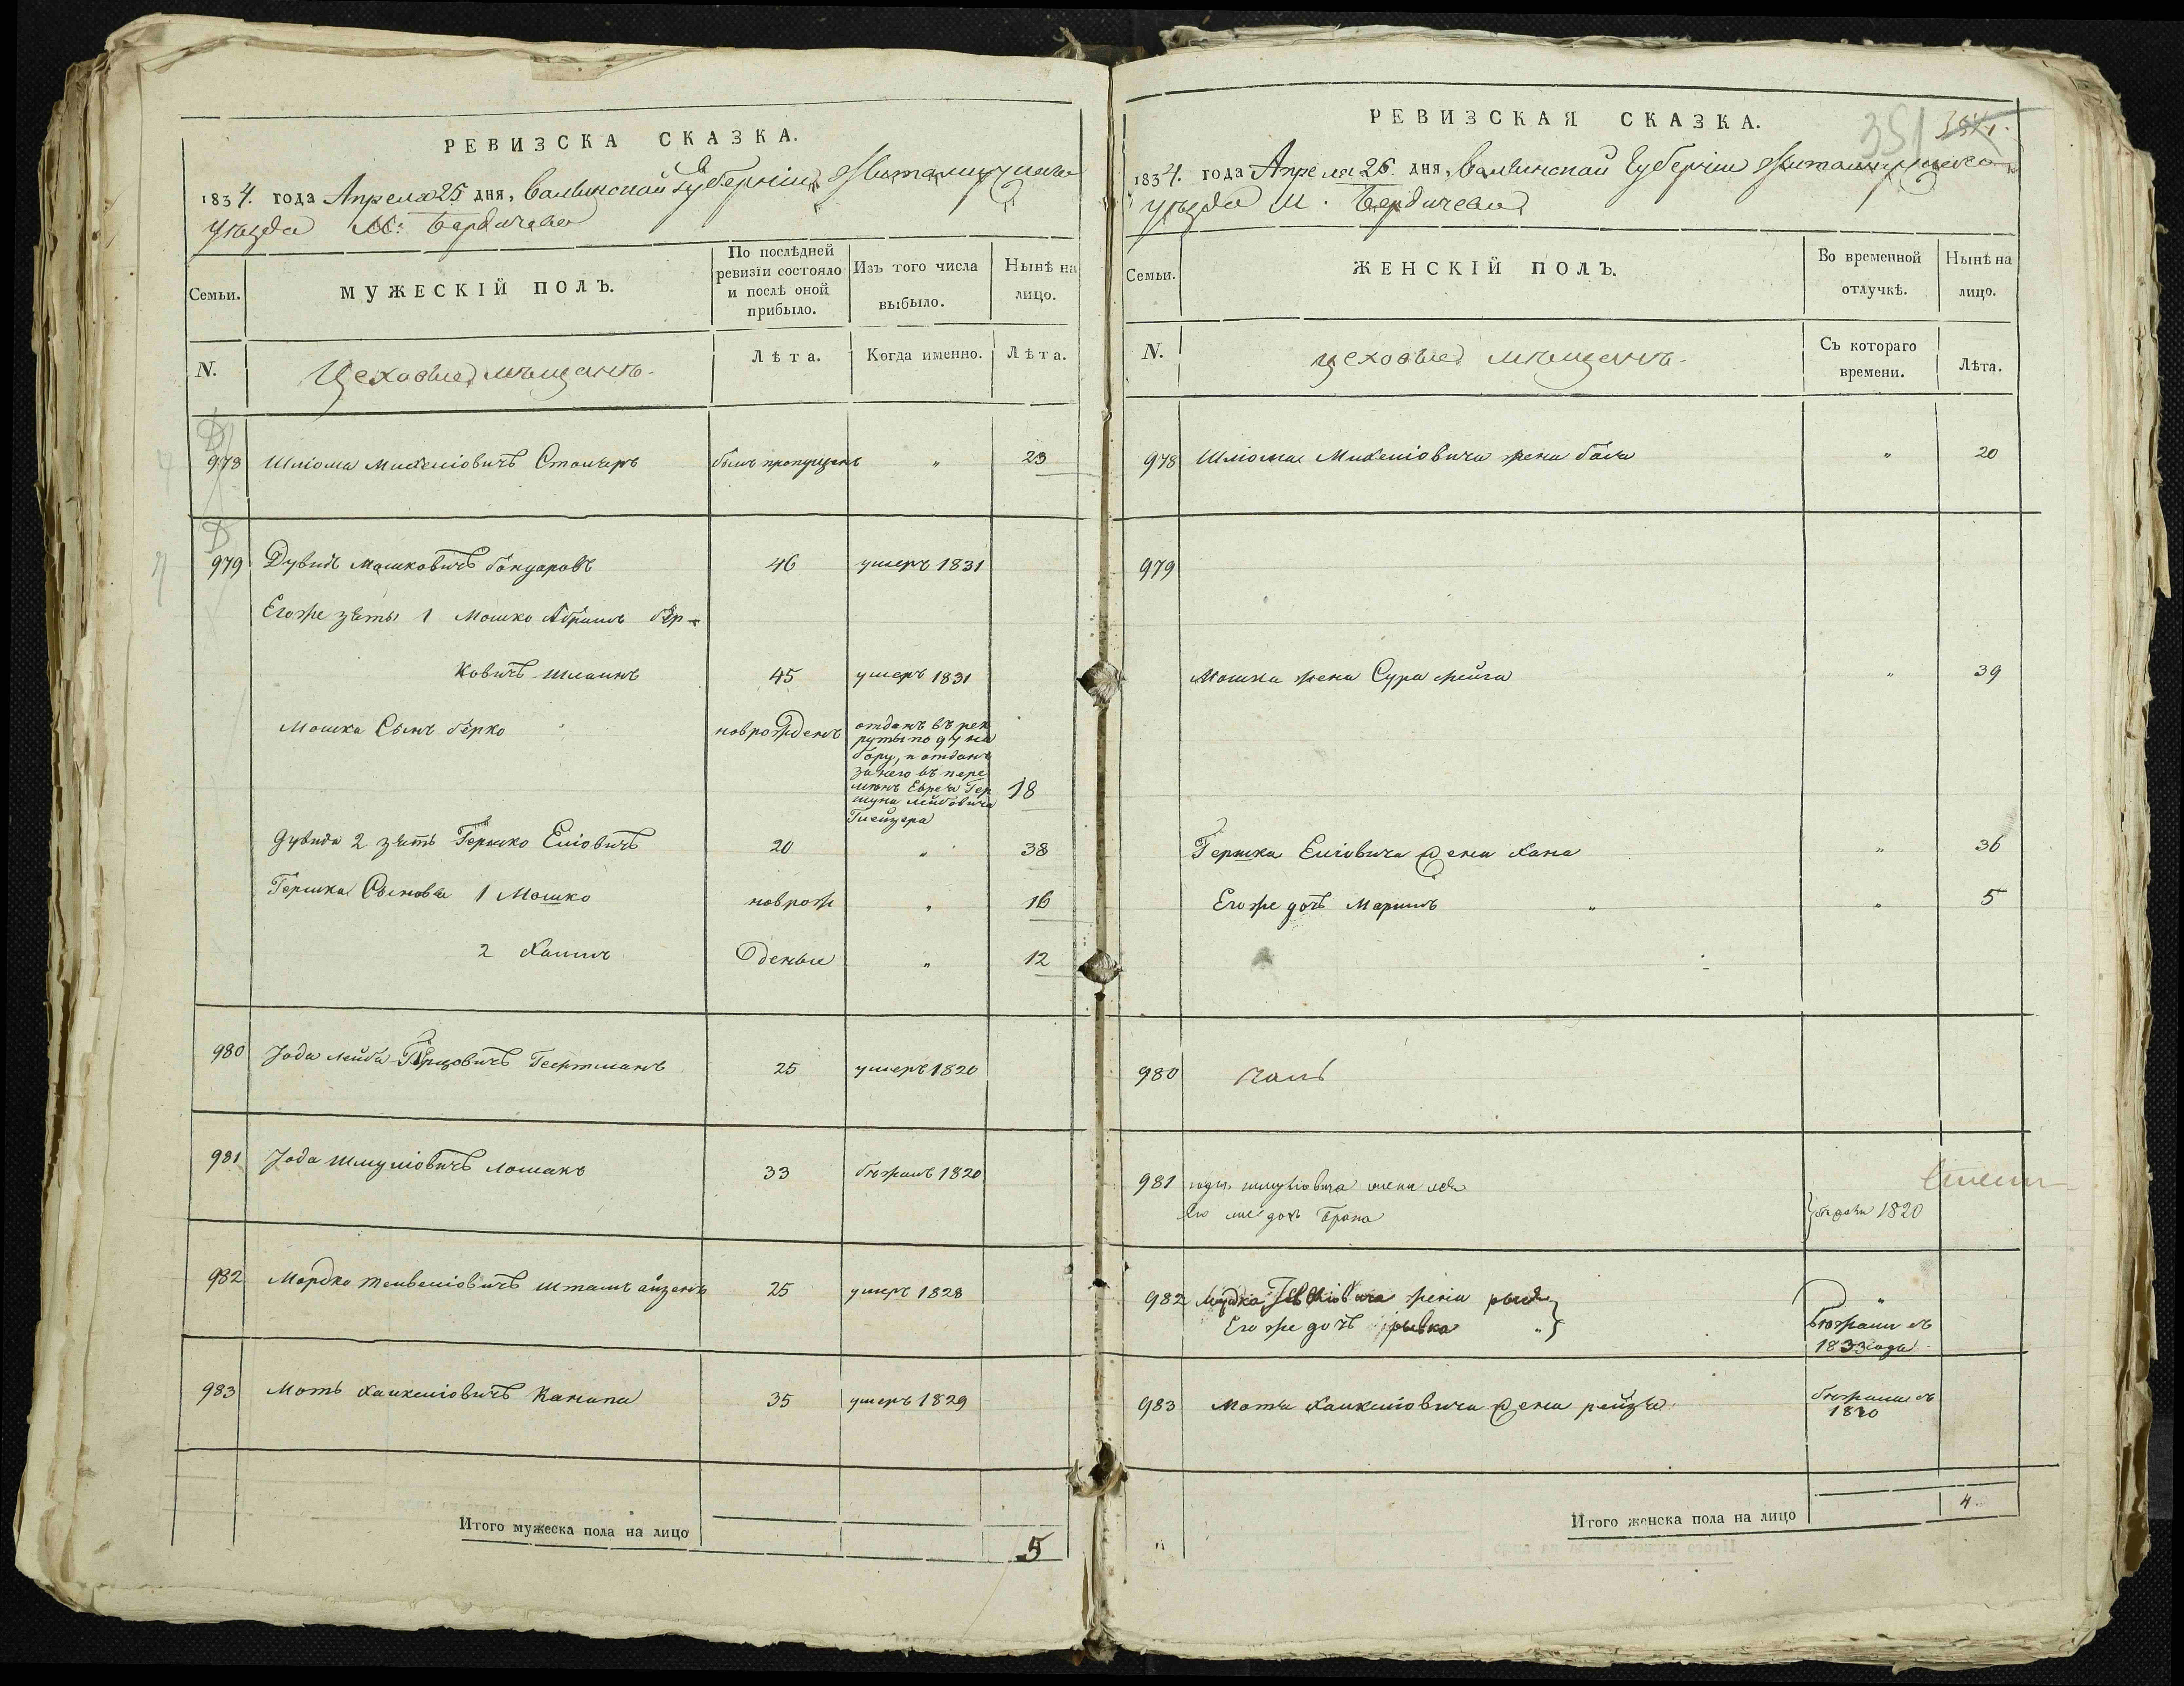 РЕВИЗСКА СКАЗКА.
1834. года Апреля 25 дня, Волынской Губернии Житомирскаго
уѣзда М: Бердичева
Семьи.
МУЖЕСКІЙ ПОЛЪ.
По послѣдней ревизіи состояло и послѣ оной прибыло.
Изъ того числа выбыло.
Нынѣ на лицо.
N.
Цеховые мѣщанъ
Лѣта.
Когда именно.
Лѣта.
978 Шліома Михеліовичъ Столяръ былъ пропущенъ " 23
979 Дувидъ Мошковичъ Бондаровъ 46 умеръ 1831
Егоже зяты 1 Мошко Абрамъ Бер-
ковичъ 45 умеръ 1831
Мошка Сынъ Берко новорожденъ отданъ въ рек
руты по 94 на
бору, и отданъ
за него въ пере
мѣнъ Еврея Гер
шуна Лейбовича 18
Дувида 2 зять Гершко Еліовичъ 20 " 38
Гершка Сыновья 1 Мошко новорож " 16
2 Хаимъ деные " 12
980 Іода Лейба Герцовичъ 25 умеръ 1820
981 Іода Шмуліовичъ Лошакъ 33 бѣжалъ 1820
982 Мордко 25 умеръ 1828
983 Моть Ханкеліовичъ Канапа 35 умеръ 1829
Итого мужеска пола на лицо 5
РЕВИЗСКАЯ СКАЗКА.
351
1834. года Апреля 25 дня, Волынской Губерніи Житомирскаго
уѣзда М. Бердичева
Семьи.
ЖЕНСКІЙ ПОЛЪ.
Во временной отлучкѣ.
Нынѣ на лицо.
N.
Цеховые мѣщанъ
Съ котораго времени.
Лѣта.
978 Шліома Михеліовича жена Бася " 20
979
Мошка жена Сура Фейга " 39
Гершка Еліовича жена Хана " 36
Егоже дочь Маримъ " " 5
980
981 Іоды Шмуліовича жена
дочь Брана бѣжали 1820
982 Мордка жена
Егоже дочь Рывка " бѣжали въ
1833 года
983 Мотя Ханкеліовича жена Рейзя бѣжала въ
1820
Итого женска пола на лицо 4